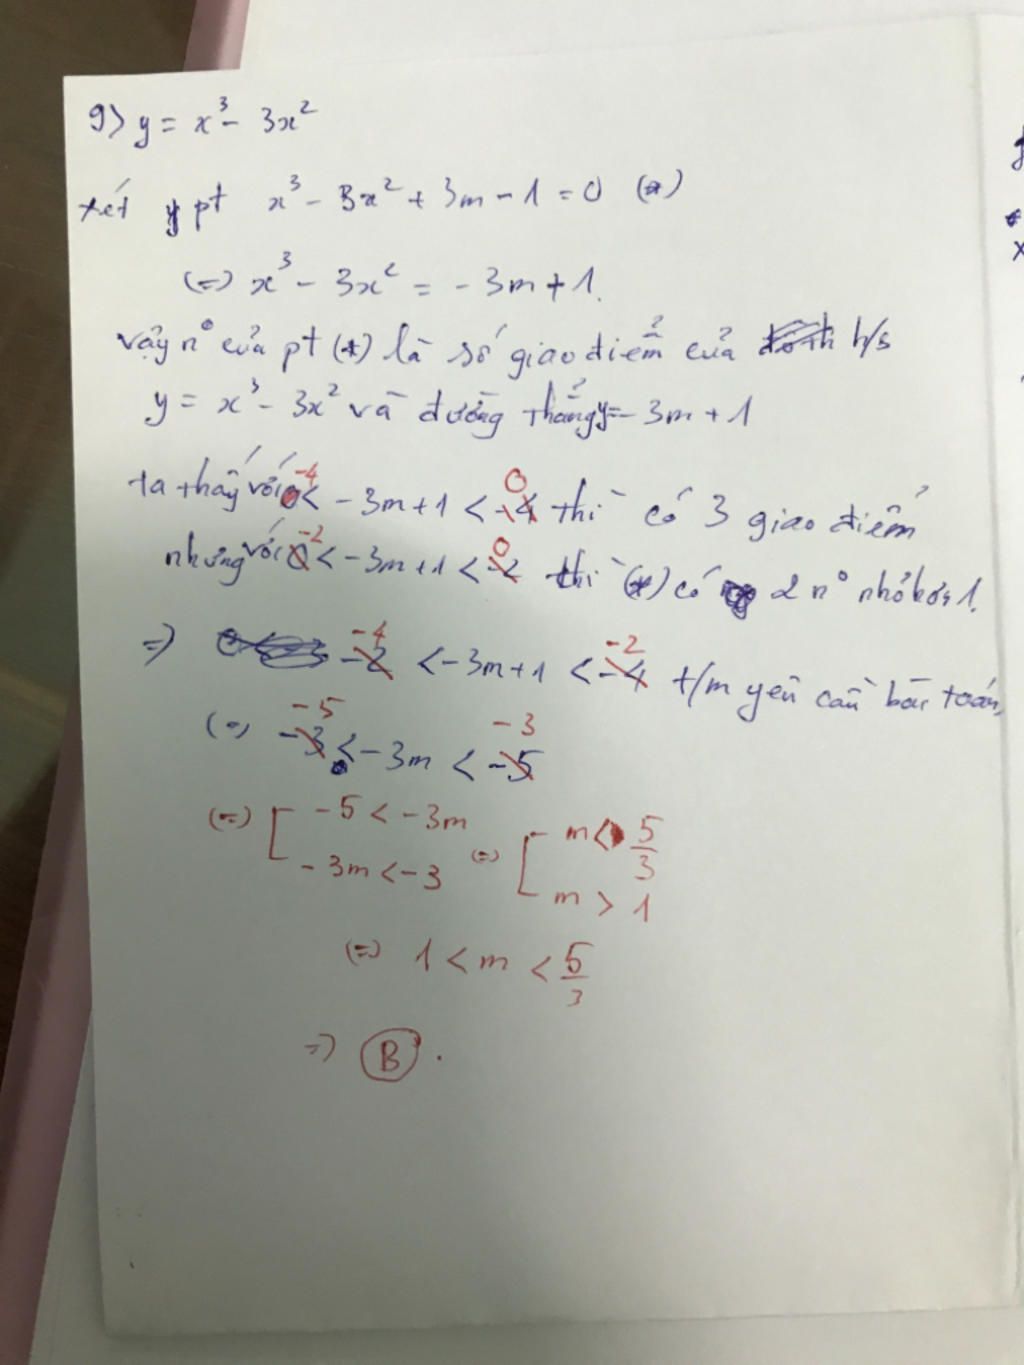 9) y = x³ - 3x²
xét pt x³ - 3x² + 3m - 1 = 0 (*)
(=) x³ - 3x² = - 3m + 1.
vậy n° của pt (*) là số giao điểm của h/s
y = x³ - 3x² và đường thẳng y = - 3m + 1
ta thấy với -4 < - 3m + 1 < 0 thì có 3 giao điểm
nhưng với -2 < - 3m + 1 < 0 thì (*) có 2 n° nhỏ hơn 1.
=) -4 < - 3m + 1 < -2 t/m yêu cầu bài toán,
(=) -5 < - 3m < -3
(=) [ -5 < - 3m (=) [ m < 5/3
- 3m < - 3 m > 1
(=) 1 < m < 5/3
=) B .